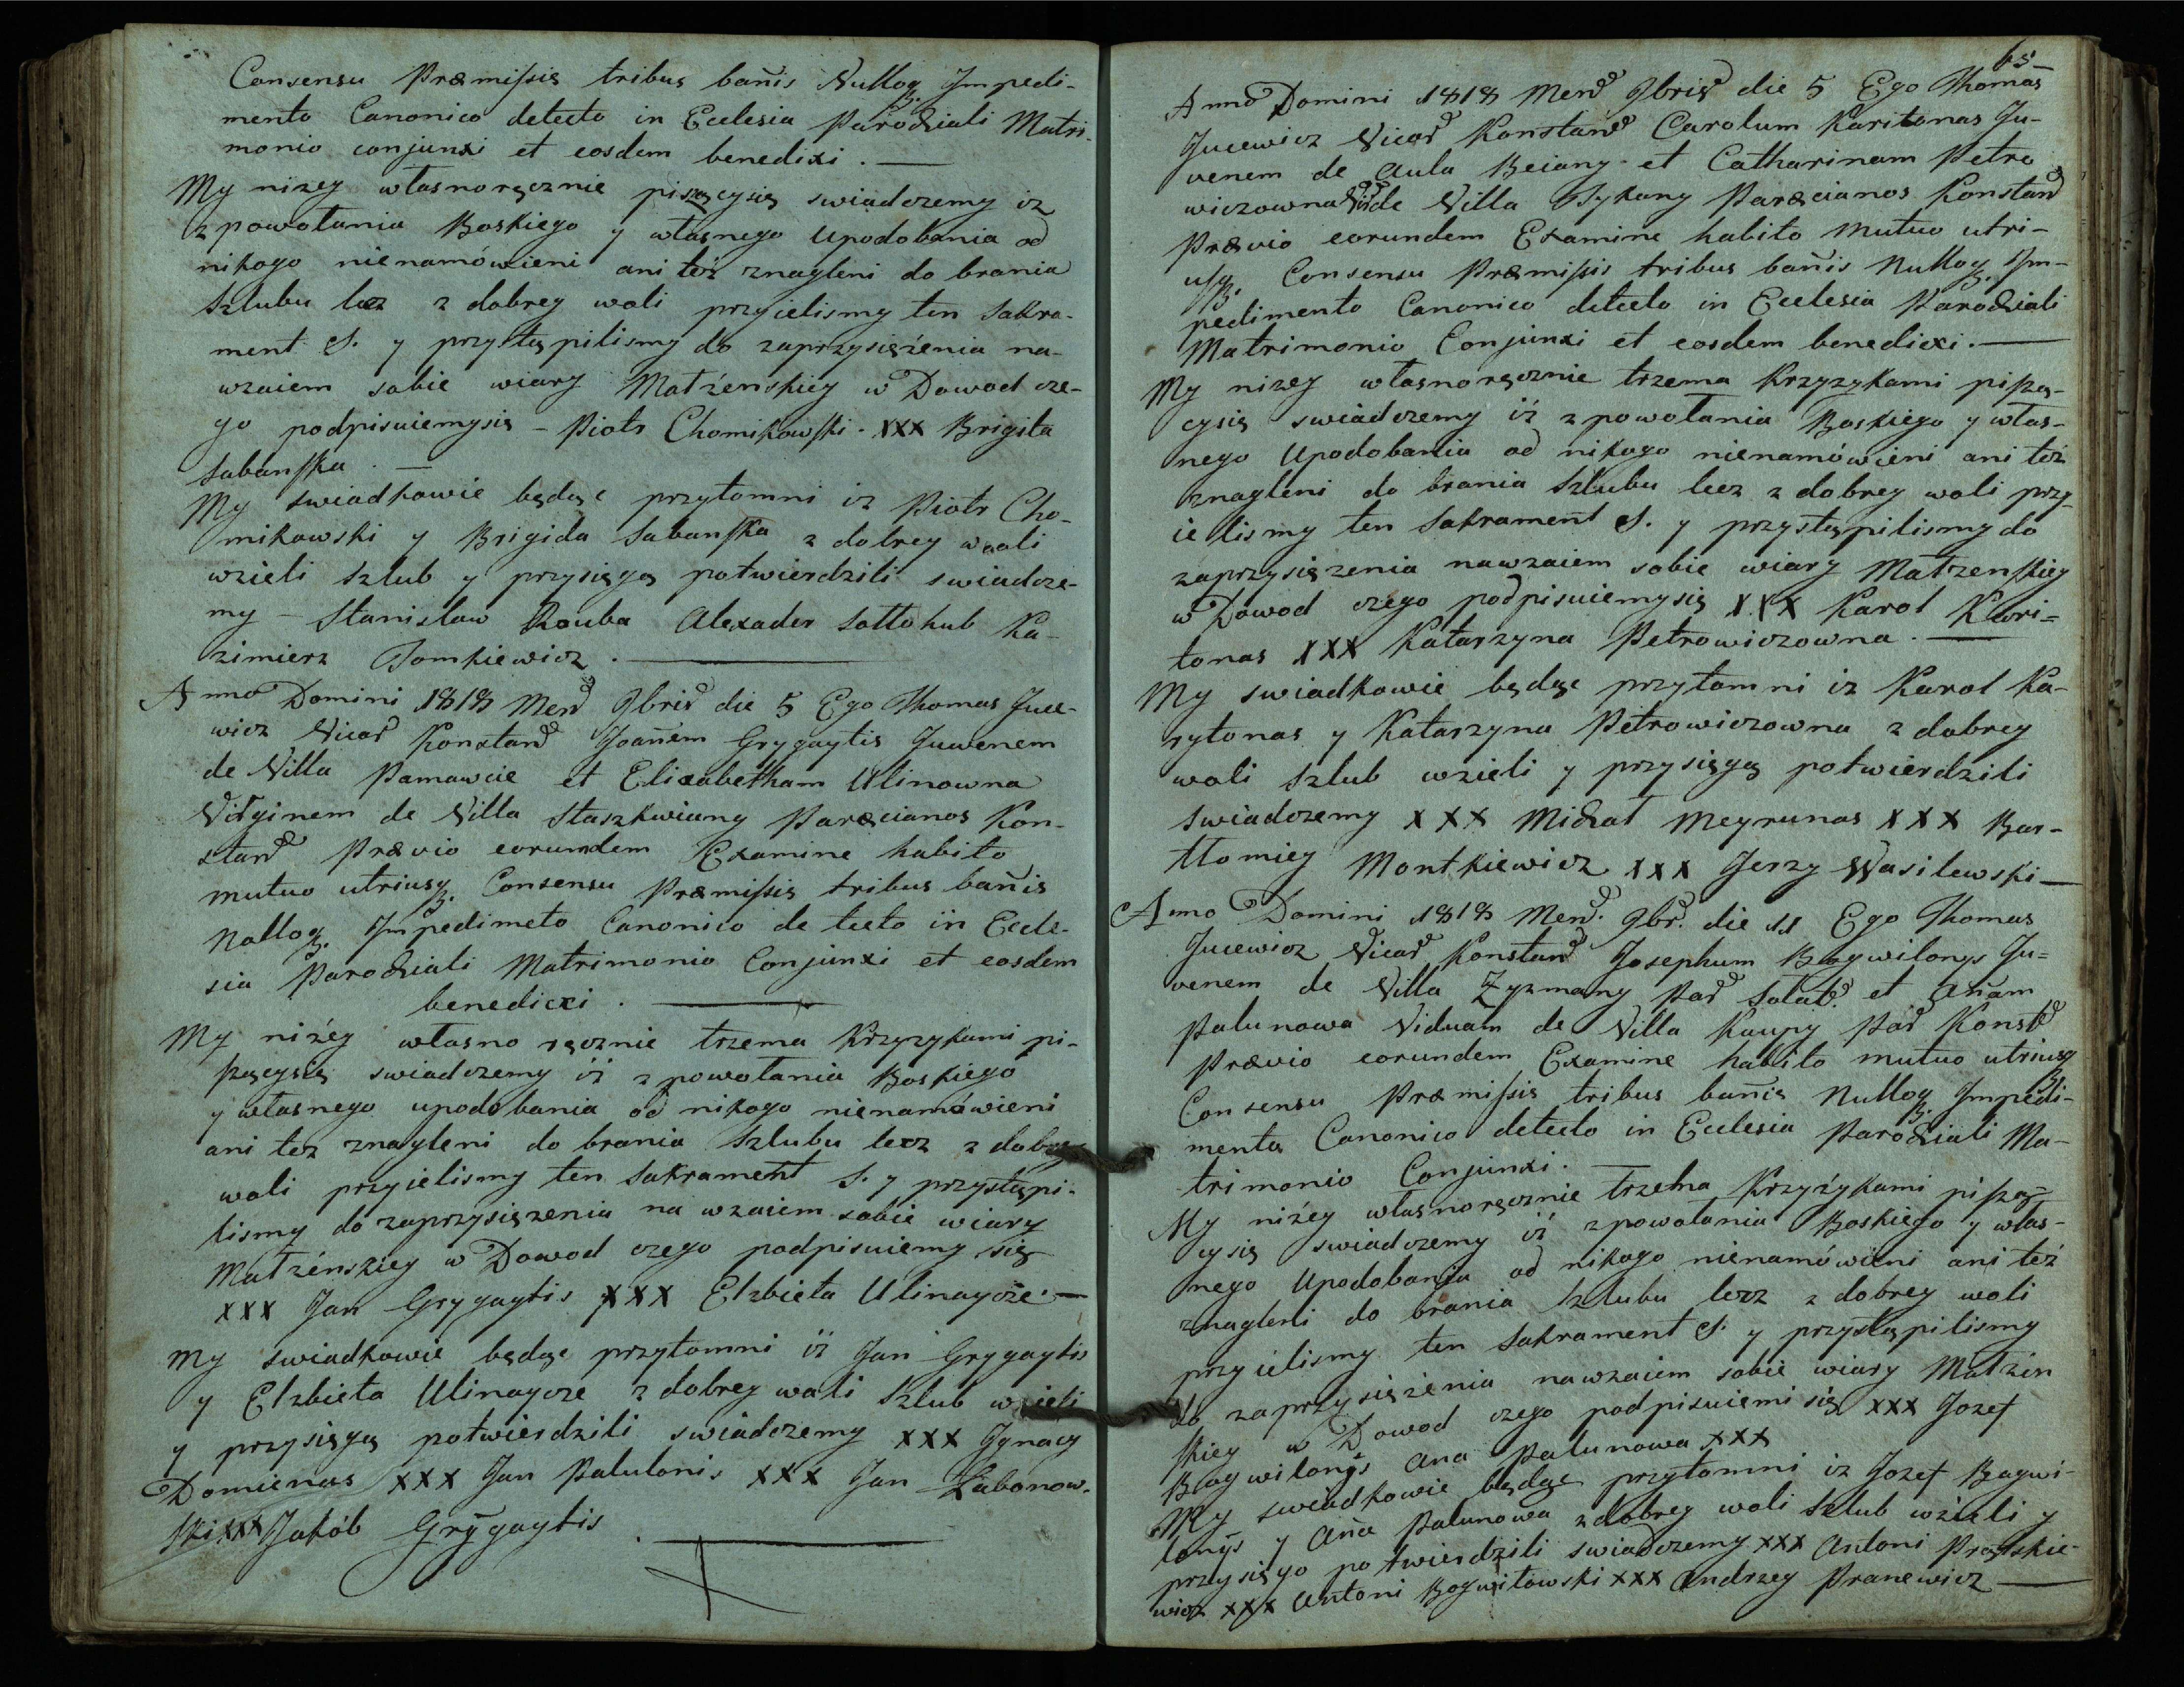 Consensu Præmissis tribus bañis Nulloq. Impedi-
mento Canonico detecto in Ecclesia Parochiali Matri-
monio conjunxi et eosdem benedixi. —
My nizey własnoręcznie piszącysię swiadczemy iz
z powołania Boskiego y własnego Upodobania od
nikogo nienamówieni ani też znagleni do brania
Szlubu lecz z dobrey woli przyielismy ten Sakra-
ment S. y przystąpilismy do zaprzysiężenia na-
wzaiem sobie wiary Małżenskiey w Dowod cze-
go podpisuiemysię - Piotr Chomikowski. xxx Brigita
Sabanska. —
My swiadkowie będąc przytomni iz Piotr Cho-
mikowski y Brigida Sabanska z dobrey wooli
wzieli szlub y przysięgą potwierdzili swiadcze-
my - Stanisław Rouba Alexader Sottohub Ka-
zimierz Tomkiewicz. —
Anno Domini 1818 Men 9bris die 5 Ego Thomas Juce-
wicz Vicar Konstan Joañem Grygaytis Juvenem
de Villa Pamawcie et Elizabetham Ulinowna
Virginem de Villa Staszkwiany Paræcianos Kon-
stan Prævio eorumdem Examine habito
mutuo utriusq. Consensu Præmissis tribus bañis
Nalloq. Impedimeto Canonico de tecto in Eccle-
sia Parochiali Matrimonio Conjunxi et eosdem
benedicxi. —
My niżey własno ręcznie trzema Krzyzykami pi-
szącysię swiadczemy iż z powołania Boskiego
y własnego upodobania od nikogo nienamówieni
ani tez znagleni do brania Szlubu lecz z dobrey
woli przyielismy ten Sakrament S. y przystąpi-
lismy do zaprzysięzenia na wzaiem sobie wiary
Małżénskiey w Dowod czego podpisuiemy się
xxx Jan Grygaytis xxx Elzbieta Ulinaycze. —
My swiadkowie będąc przytomni iż Jan Grygaytis
y Elzbieta Ulinaycze z dobrey woli Szlub wzieli
y przysięgą potwierdzili swiadczemy xxx Jgnacy
Domienas xxx Jan Palulonis xxx Jan Labonow-
ski xxx Jakób Grygaytis. —
65
Anno Domini 1818 Men 9bris die 5 Ego Thomas
Jucewicz Vicar Konstan Carolum Karitonas Ju-
venem de Aula Beiany. et Catharinam Petro
wiczowna Vir de Villa Tykany Paræcianos Konstan
Prævio eorundem Examine habito Mutuo utri-
usq. Consensu Præmissis tribus bañis Nulloq. Im-
pedimento Canonico detecto in Ecclesia Parochiali
Matrimonio Conjunxi et eosdem benedicxi. —
My nizey własnoręcznie trzema Krzyzykami pisżą-
cysię swiadczemy iż z powołania Boskiego y włas-
nego Upodobania od nikogo nienamówieni ani też
znagleni do brania Szlubu lecz z dobrey woli przy
ielismy ten Sakrament S. y przystąpilismy do
zaprzysięzenia nawzaiem sobie wiary Małzenskiey
w Dowod czego podpisuiemysię xxx Karol Kari=
tonas xxx Katarzyna Petrowiczowna. —
My swiadkowie będąc przytomni iz Karol Ka-
rytonas y Katarzyna Petrowiczowna z dobrey
woli szlub wzieli y przysięgą potwierdzili
swiadczemy xxx Michał Meyrunas xxx Bar-
tłomiey Montkiewicz xxx Jerzy Wasilewski —
Anno Domini 1818 Men. 9br. die 11 Ego Thomas
Jucewicz Vicar Konstan Josephum Bogwilonys Ju=
venem de Villa Zyzmany Par Salat. et Añam
Palunowa Viduam de Villa Kaupy Par Konst
Prævio eorundem Examine habito mutuo utriusq
Consensu Præmissis tribus bañis Nulloq. Impedi-
mento Canonico detecto in Ecclesia Parochiali Ma-
trimonio Conjunxi. —
My niżey własnoręcznie trzema Krzyżykami pisżą=
cysię swiadczemy iż z powołania Boskiego y włas-
nego Upodobania od nikogo nienamówieni ani też
znagleni do brania Szlubu lecz z dobrey woli
przyielismy ten Sakrament S. y przystąpilismy
do zaprzysiężenia nawzaiem sobie wiary Małżen
skiey w Dowod czego podpisuiemi się xxx Jozef
Bogwilonys Ana Palunowa xxx
My swiadkowie będąc przytomni iz Jozef Bogwi-
lonys y Aña Palunowa z dobrey woli Szlub wzieli y
przysięgo potwierdzili swiadczemy xxx Antoni Pra
wicz xxx Antoni Bogwiłowski xxx Andrzey Pranewicz —